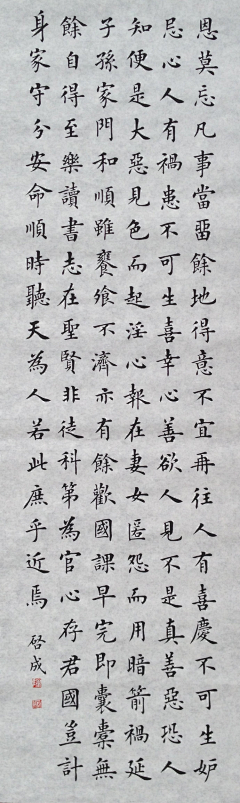 恩莫忘凡事當畱餘地得意不宜再往人有喜慶不可生妒
忌心人有禍患不可生喜幸心善欲人見不是真善惡恐人
知便是大惡見色而起淫心報在妻女匿怨而用暗箭禍延
子孫家門和順雖饔飧不濟亦有餘歡國課早完即囊橐無
餘自得至樂讀書志在聖賢非徒科第為官心存君國豈計
身家守分安命順時聽天為人若此庶乎近焉
啓成